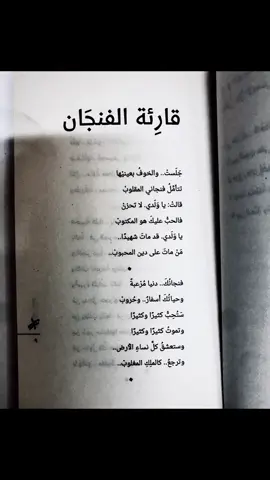 قارِئة الفنجَان
جَلَستْ.. والخوفُ بعينيْها
تتأمَّلُ فنجاني المقلوبْ
قالتْ: يا وَلَدي. لا تَحزنْ
فالحبُّ عليكَ هو المكتوبْ
يا وَلَدي. قد ماتَ شهيدًا..
مَنْ ماتَ على دين المحبوبْ..
فنجانُكَ.. دنيا مُرْعبةٌ
وحياتُكَ أسفارٌ.. وحُروبْ
سَتُحِبُّ كثيرًا وكثيرًا
وتموتُ كثيرًا وكثيرًا
وستعشقُ كلَّ نساءِ الأرضِ..
وترجعُ.. كالملِكِ المغلوبْ..